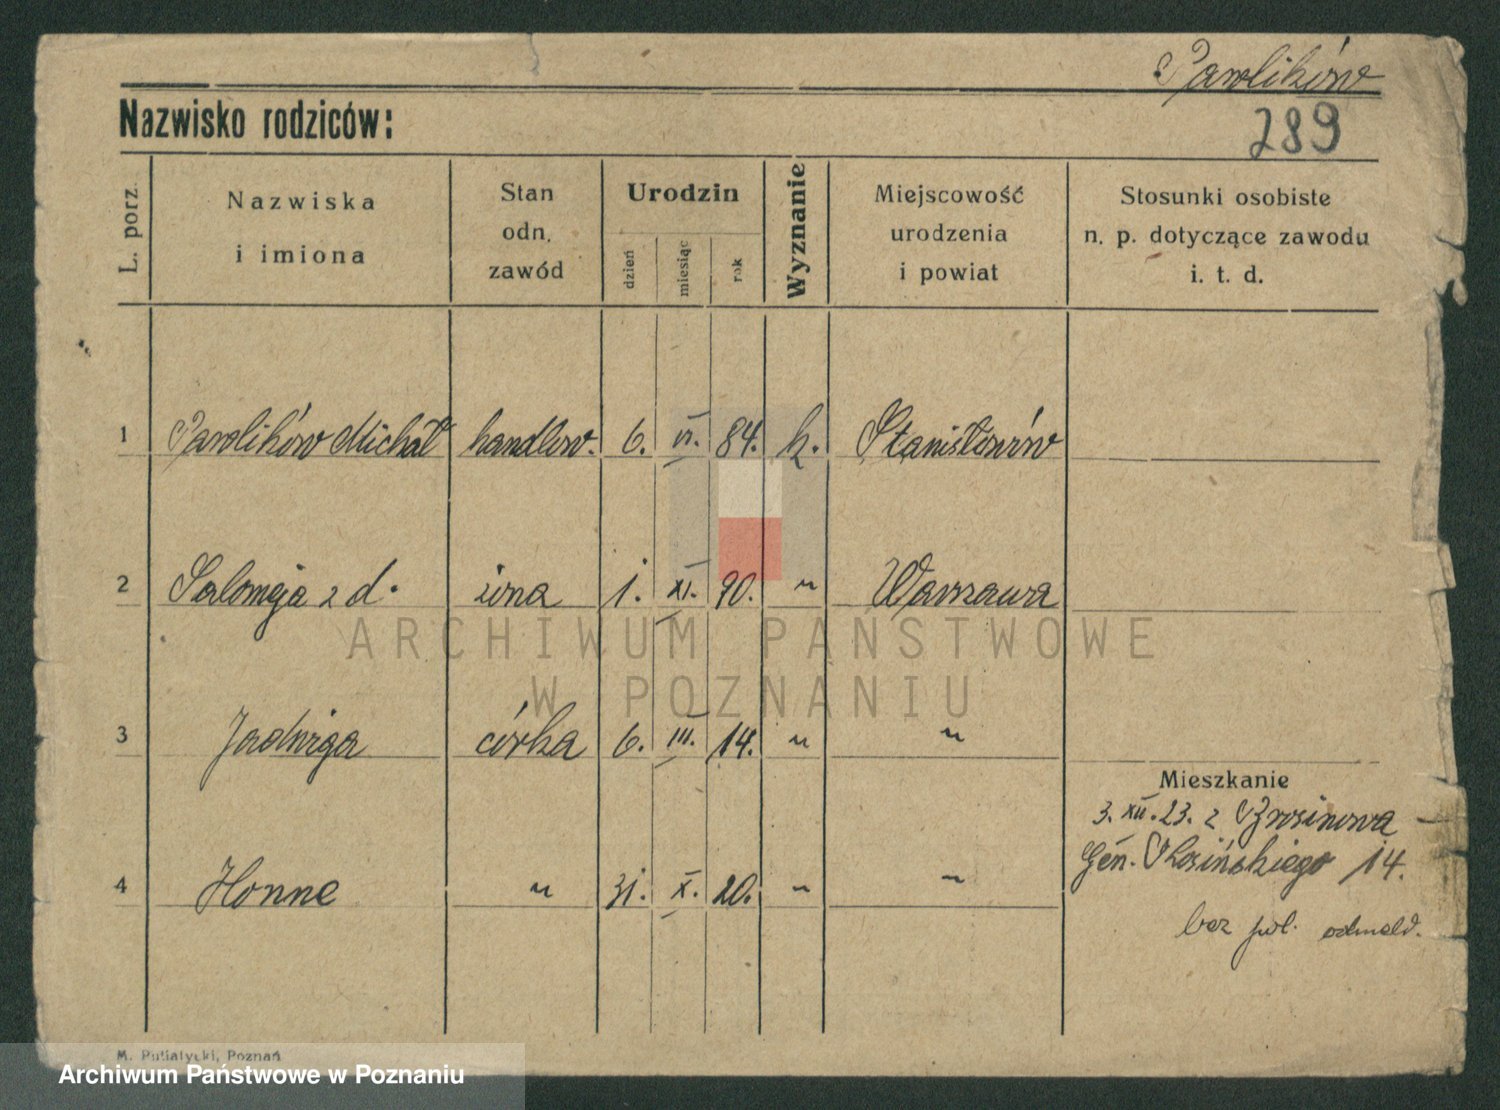 Pawlików
Nazwisko rodziców:
289
L. porz.
Nazwiska
i imiona
Stan
odn.
zawód
Urodzin
dzień
miesiąc
rok
Wyznanie
Miejscowość
urodzenia
i powiat
Stosunki osobiste
n. p. dotyczące zawodu
i. t. d.
1 Pawlików Michał handlow. 6. VI. 84. k. Stanisławów
2 Salomeja z d. żona 1. XI. 90. " Warszawa
ARCHIWUM PAŃSTWOWE
W POZNANIU
3 Jadwiga córka 6. III. 14. " "
Mieszkanie
3. XII. 23. z
Gen. 14.
4 Honne " 31. X. 20. " "
bez pol. odmeld.
M. Putiatycki, Poznań
Archiwum Państwowe w Poznaniu